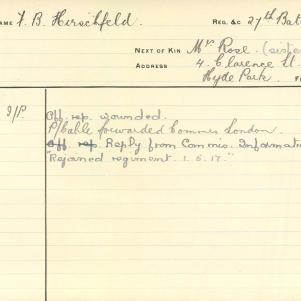 NAME F. B. Hirschfeld. REG. &c 27th Bat
NEXT OF KIN Mrs Rose. (sister
ADDRESS 4. Clarence St.
Hyde Park.
Off. rep. wounded.
P/Cable forwarded Commis London.
Off. rep. Reply from Commis. Informati
"Rejoined regiment. 1.5.17."